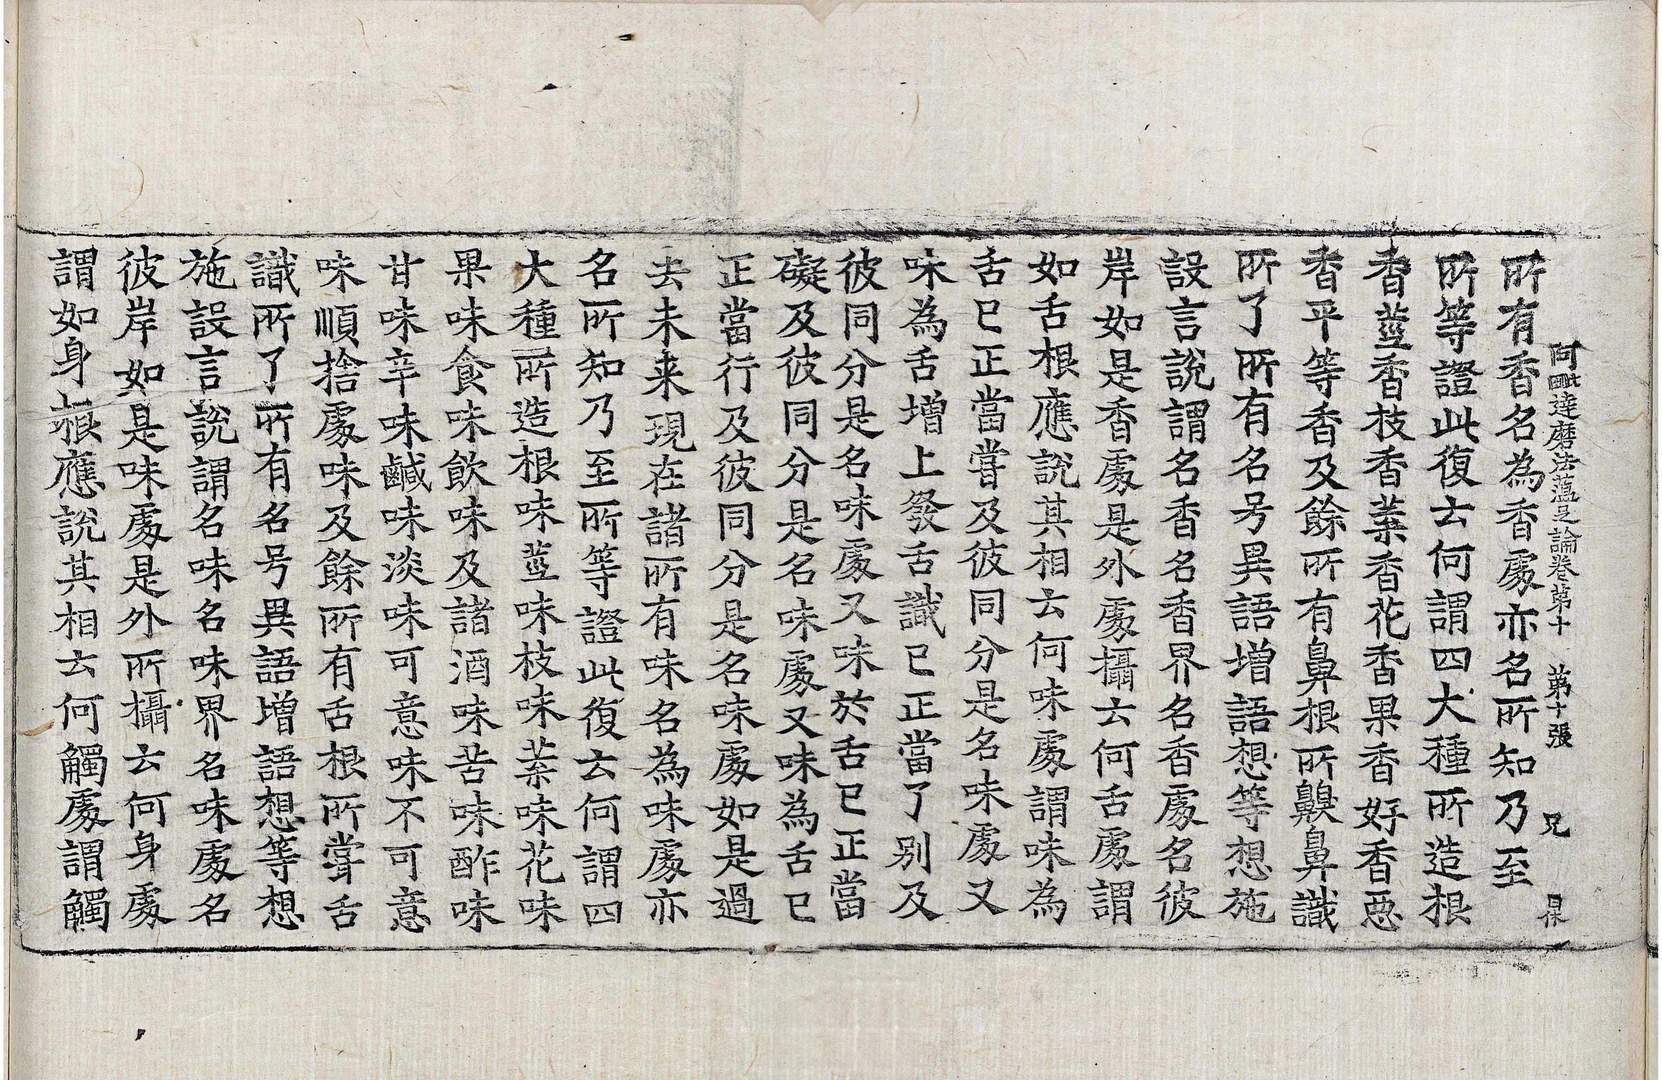 阿毗達磨法蘊足論卷第十　第十張　兄
所有香名為香處亦名所知乃至
所等證此復云何謂四大種所造根
香莖香枝香葉香花香果香好香惡
香平等香及餘所有鼻根所齅鼻識
所了所有名号異語增語想等想施
設言說謂名香名香界名香處名彼
岸如是香處是外處攝云何舌處謂
如舌根應說其相云何味處謂味為
舌已正當嘗及彼同分是名味處又
味為舌增上發舌識已正當了別及
彼同分是名味處又味於舌已正當
礙及彼同分是名味處又味為舌已
正當行及彼同分是名味處如是過
去未来現在諸所有味名為味處亦
名所知乃至所等證此復云何謂四
大種所造根味莖味枝味葉味花味
果味食味飲味及諸酒味苦味酢味
甘味辛味鹹味淡味可意味不可意
味順捨處味及餘所有舌根所甞舌
識所了所有名号異語增語想等想
施設言說謂名味名味界名味處名
彼岸如是味處是外所攝云何身處
謂如身根應說其相云何觸處謂觸